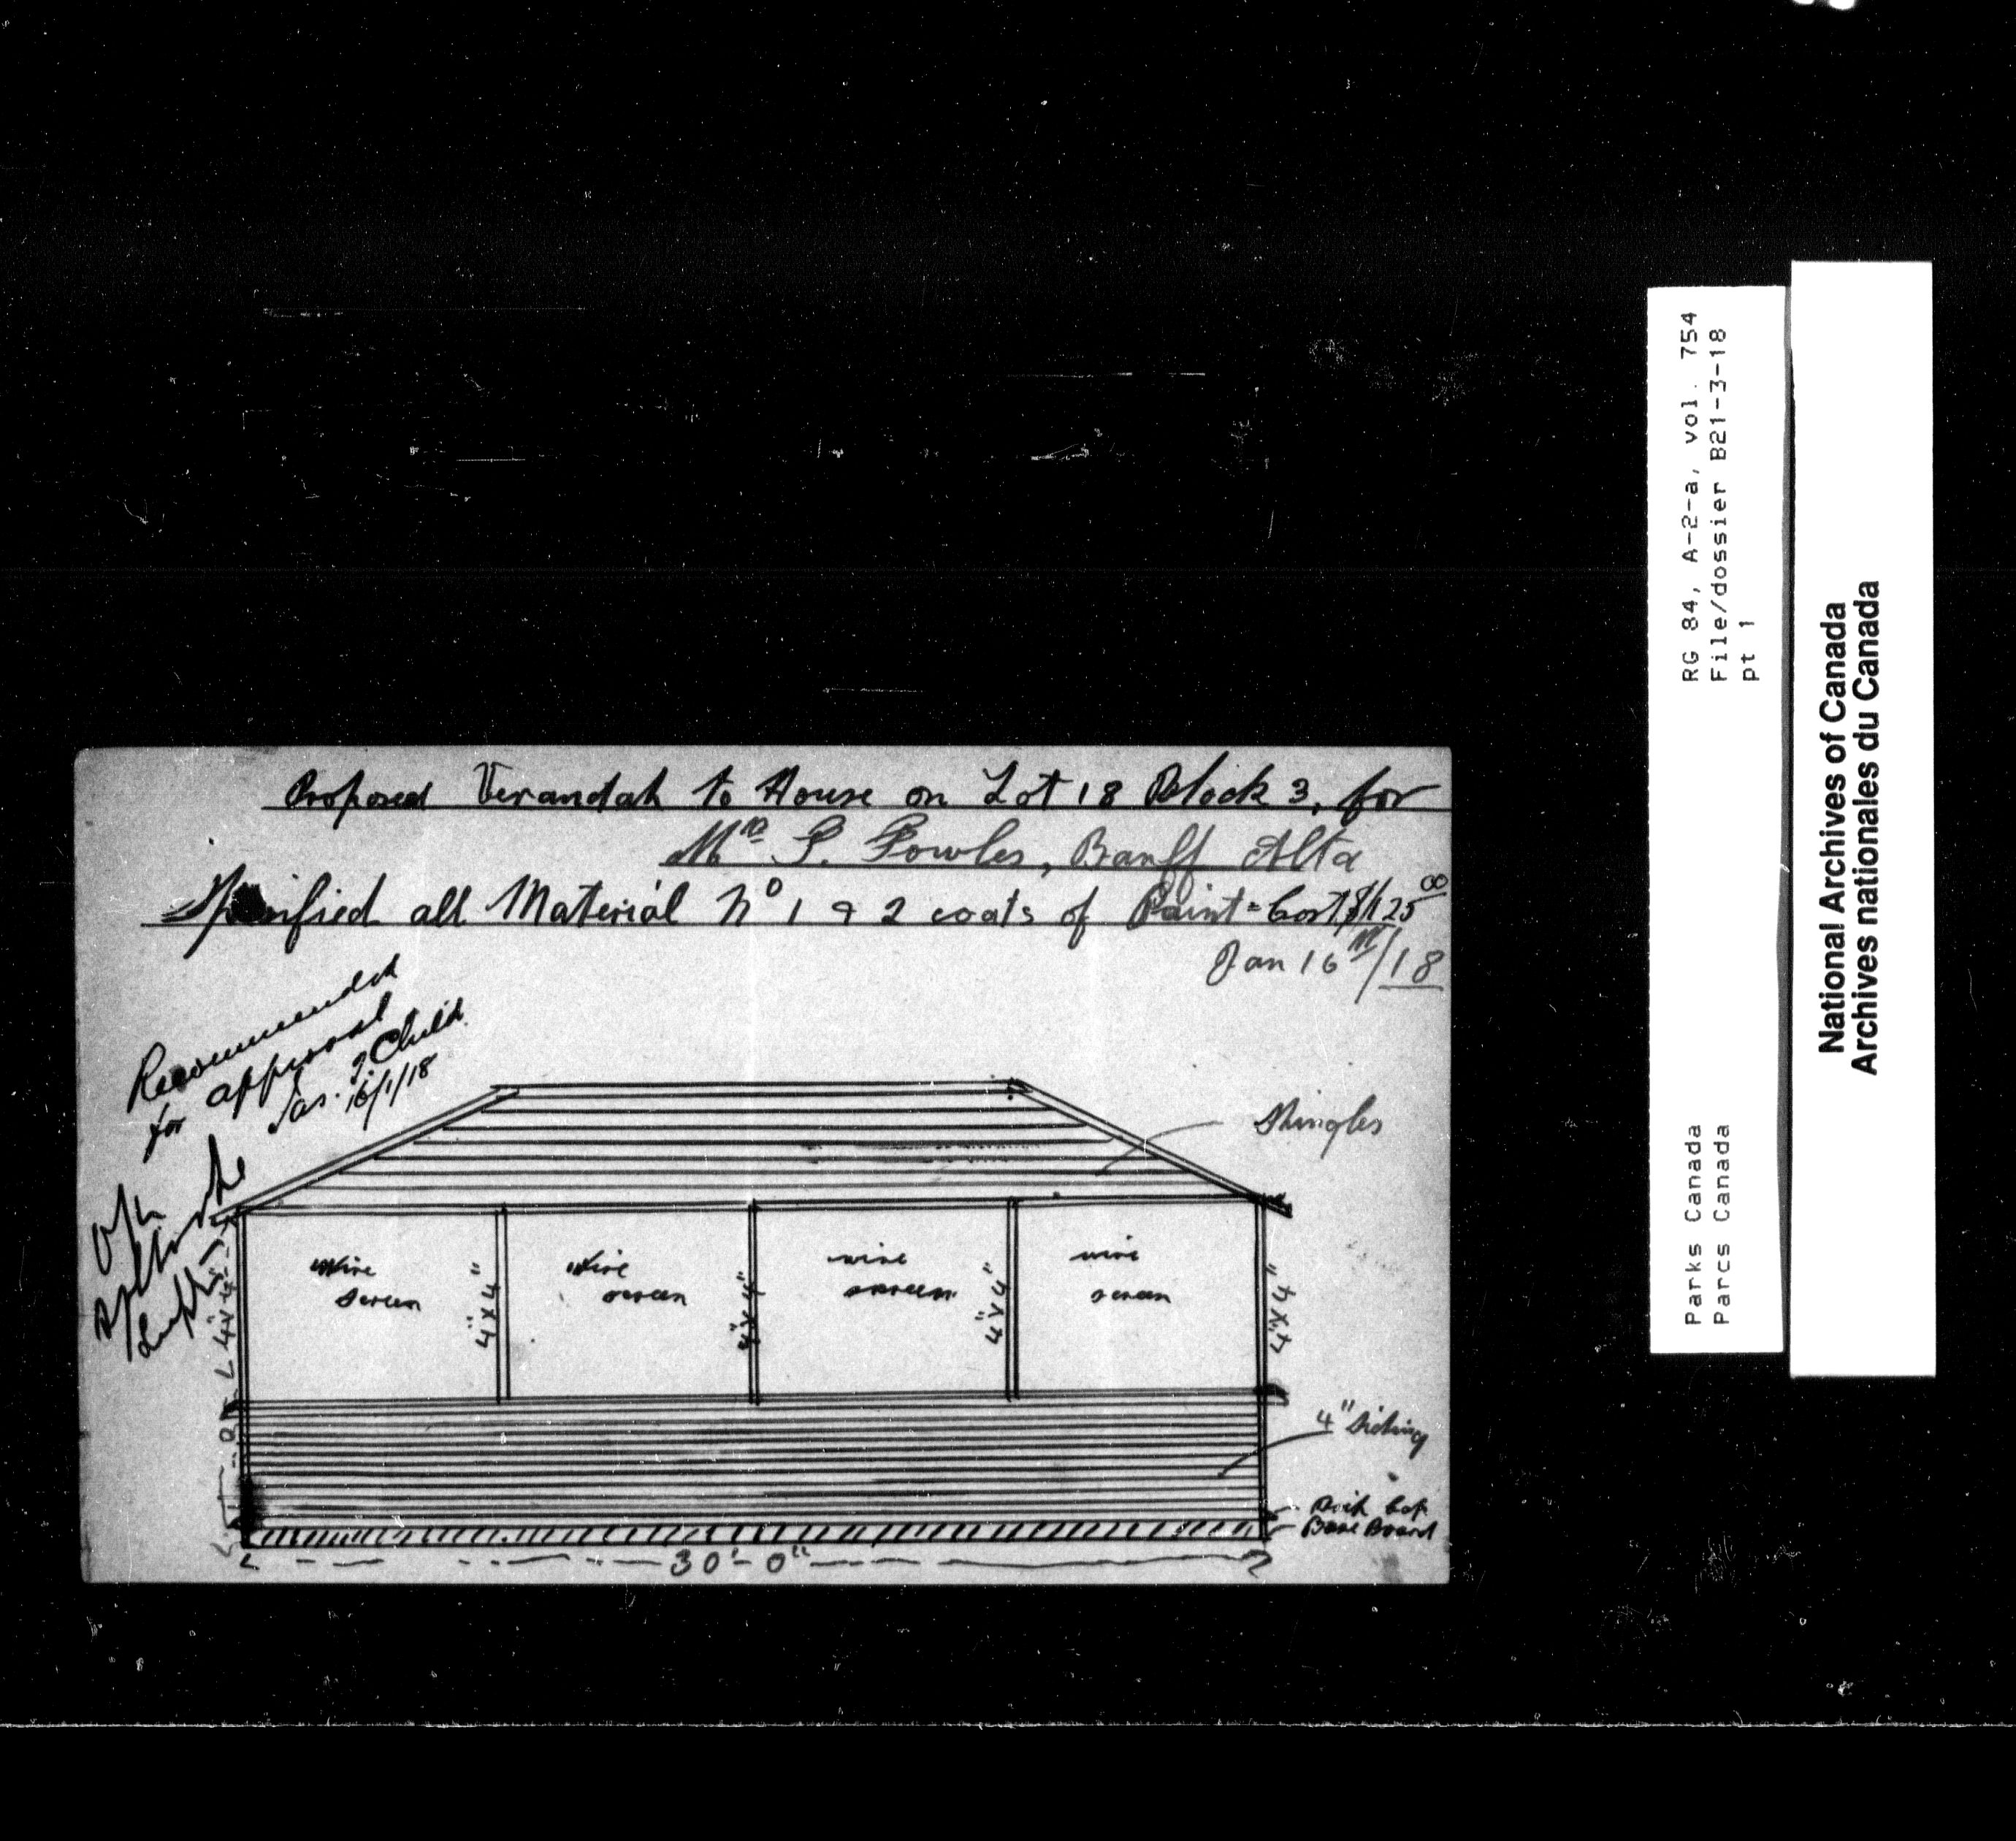 Proposed Verandah to House on Lot 18 Block 3, for
Mrs S. Fowles, Banff Alta
all Material No 1 & 2 coats of Paint = Cost $125 00
Jan 16th/18
Recommended
for approval
Jas. Child
16/1/18
Shingles
Wire
Screen
Wire
screen
wire
screen
wire
screen
4"x4"
4"x4"
4"x4"
4"x4"
4"x4"
4" Siding
Base Board
30'-0"
RG 84, A-2-a, vol. 754
File/dossier B21-3-18
pt 1
Parks Canada
Parcs Canada
National Archives of Canada
Archives nationales du Canada